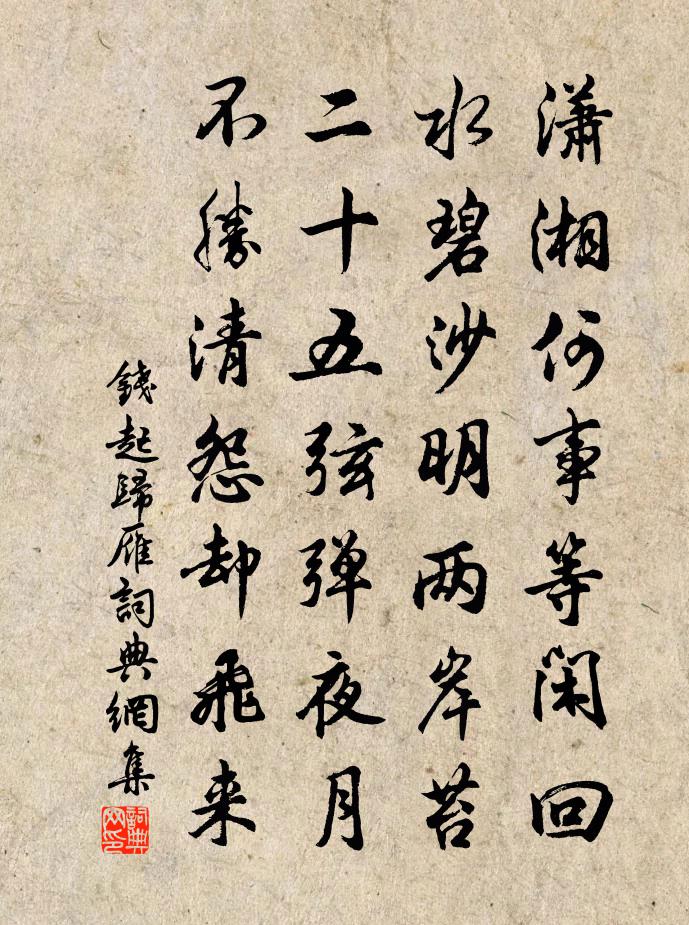 潇湘何事等闲回
水碧沙明两岸苔
二十五弦弹夜月
不勝清怨却飛来
錢起歸雁詞典網集
詞典网印